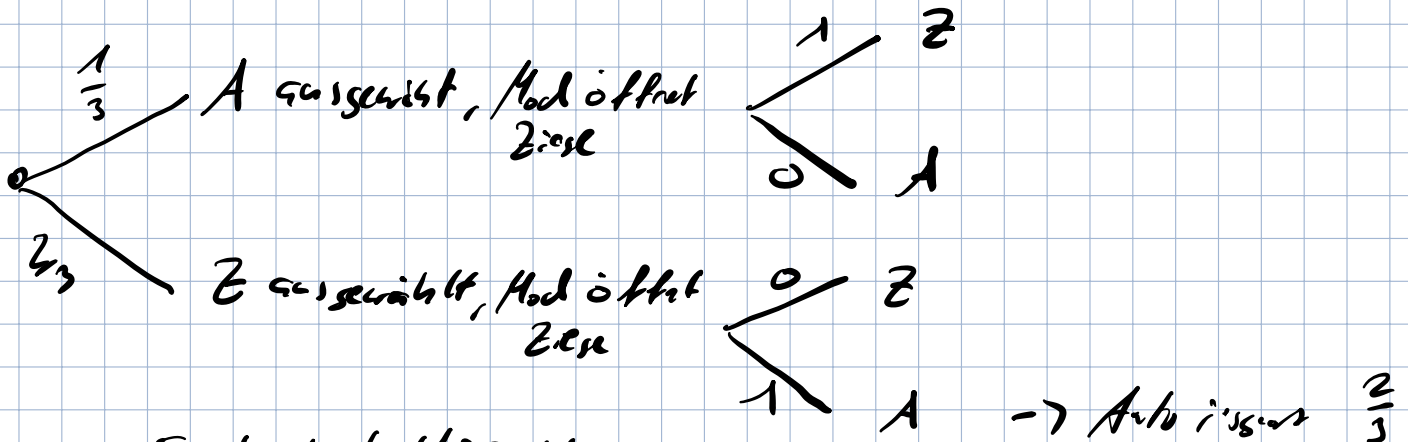 1/3 A ausgewählt, Mod öffnet Ziege
1 Z
0 A
2/3 Z ausgewählt, Mod öffnet Ziege
0 Z
1 A -> Auto insgesamt 2/3